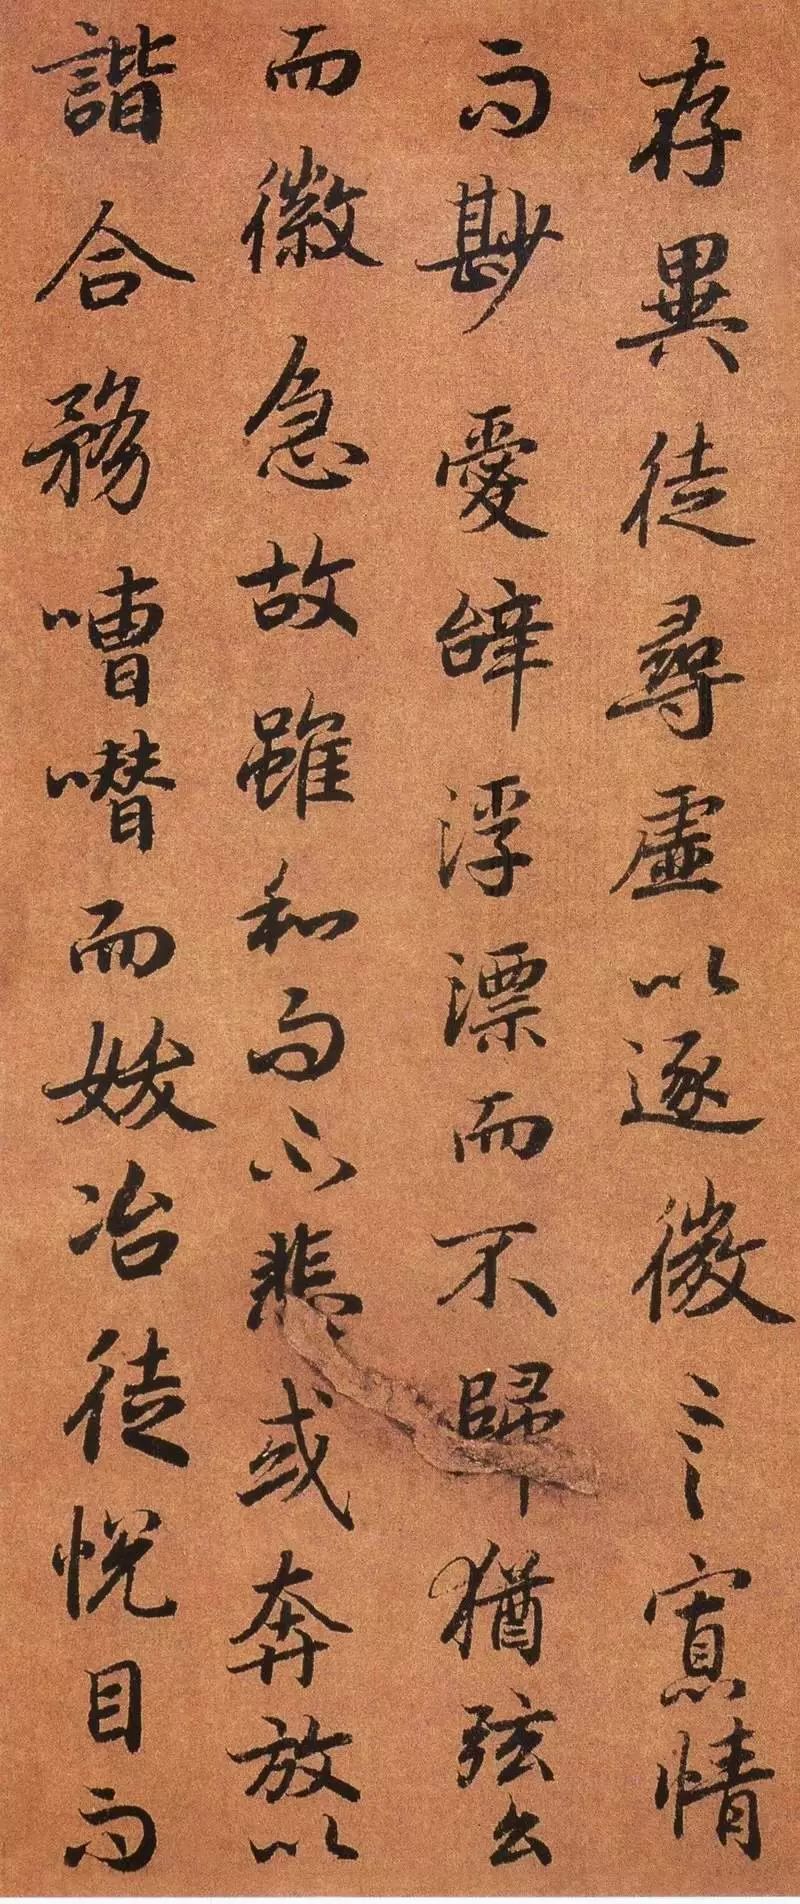 存異徒尋虛以逐微言寡情
而尠愛辝浮漂而不歸猶弦么
而徽急故雖和而不悲或奔放以
諧合務嘈噆而妖冶徒悅目而